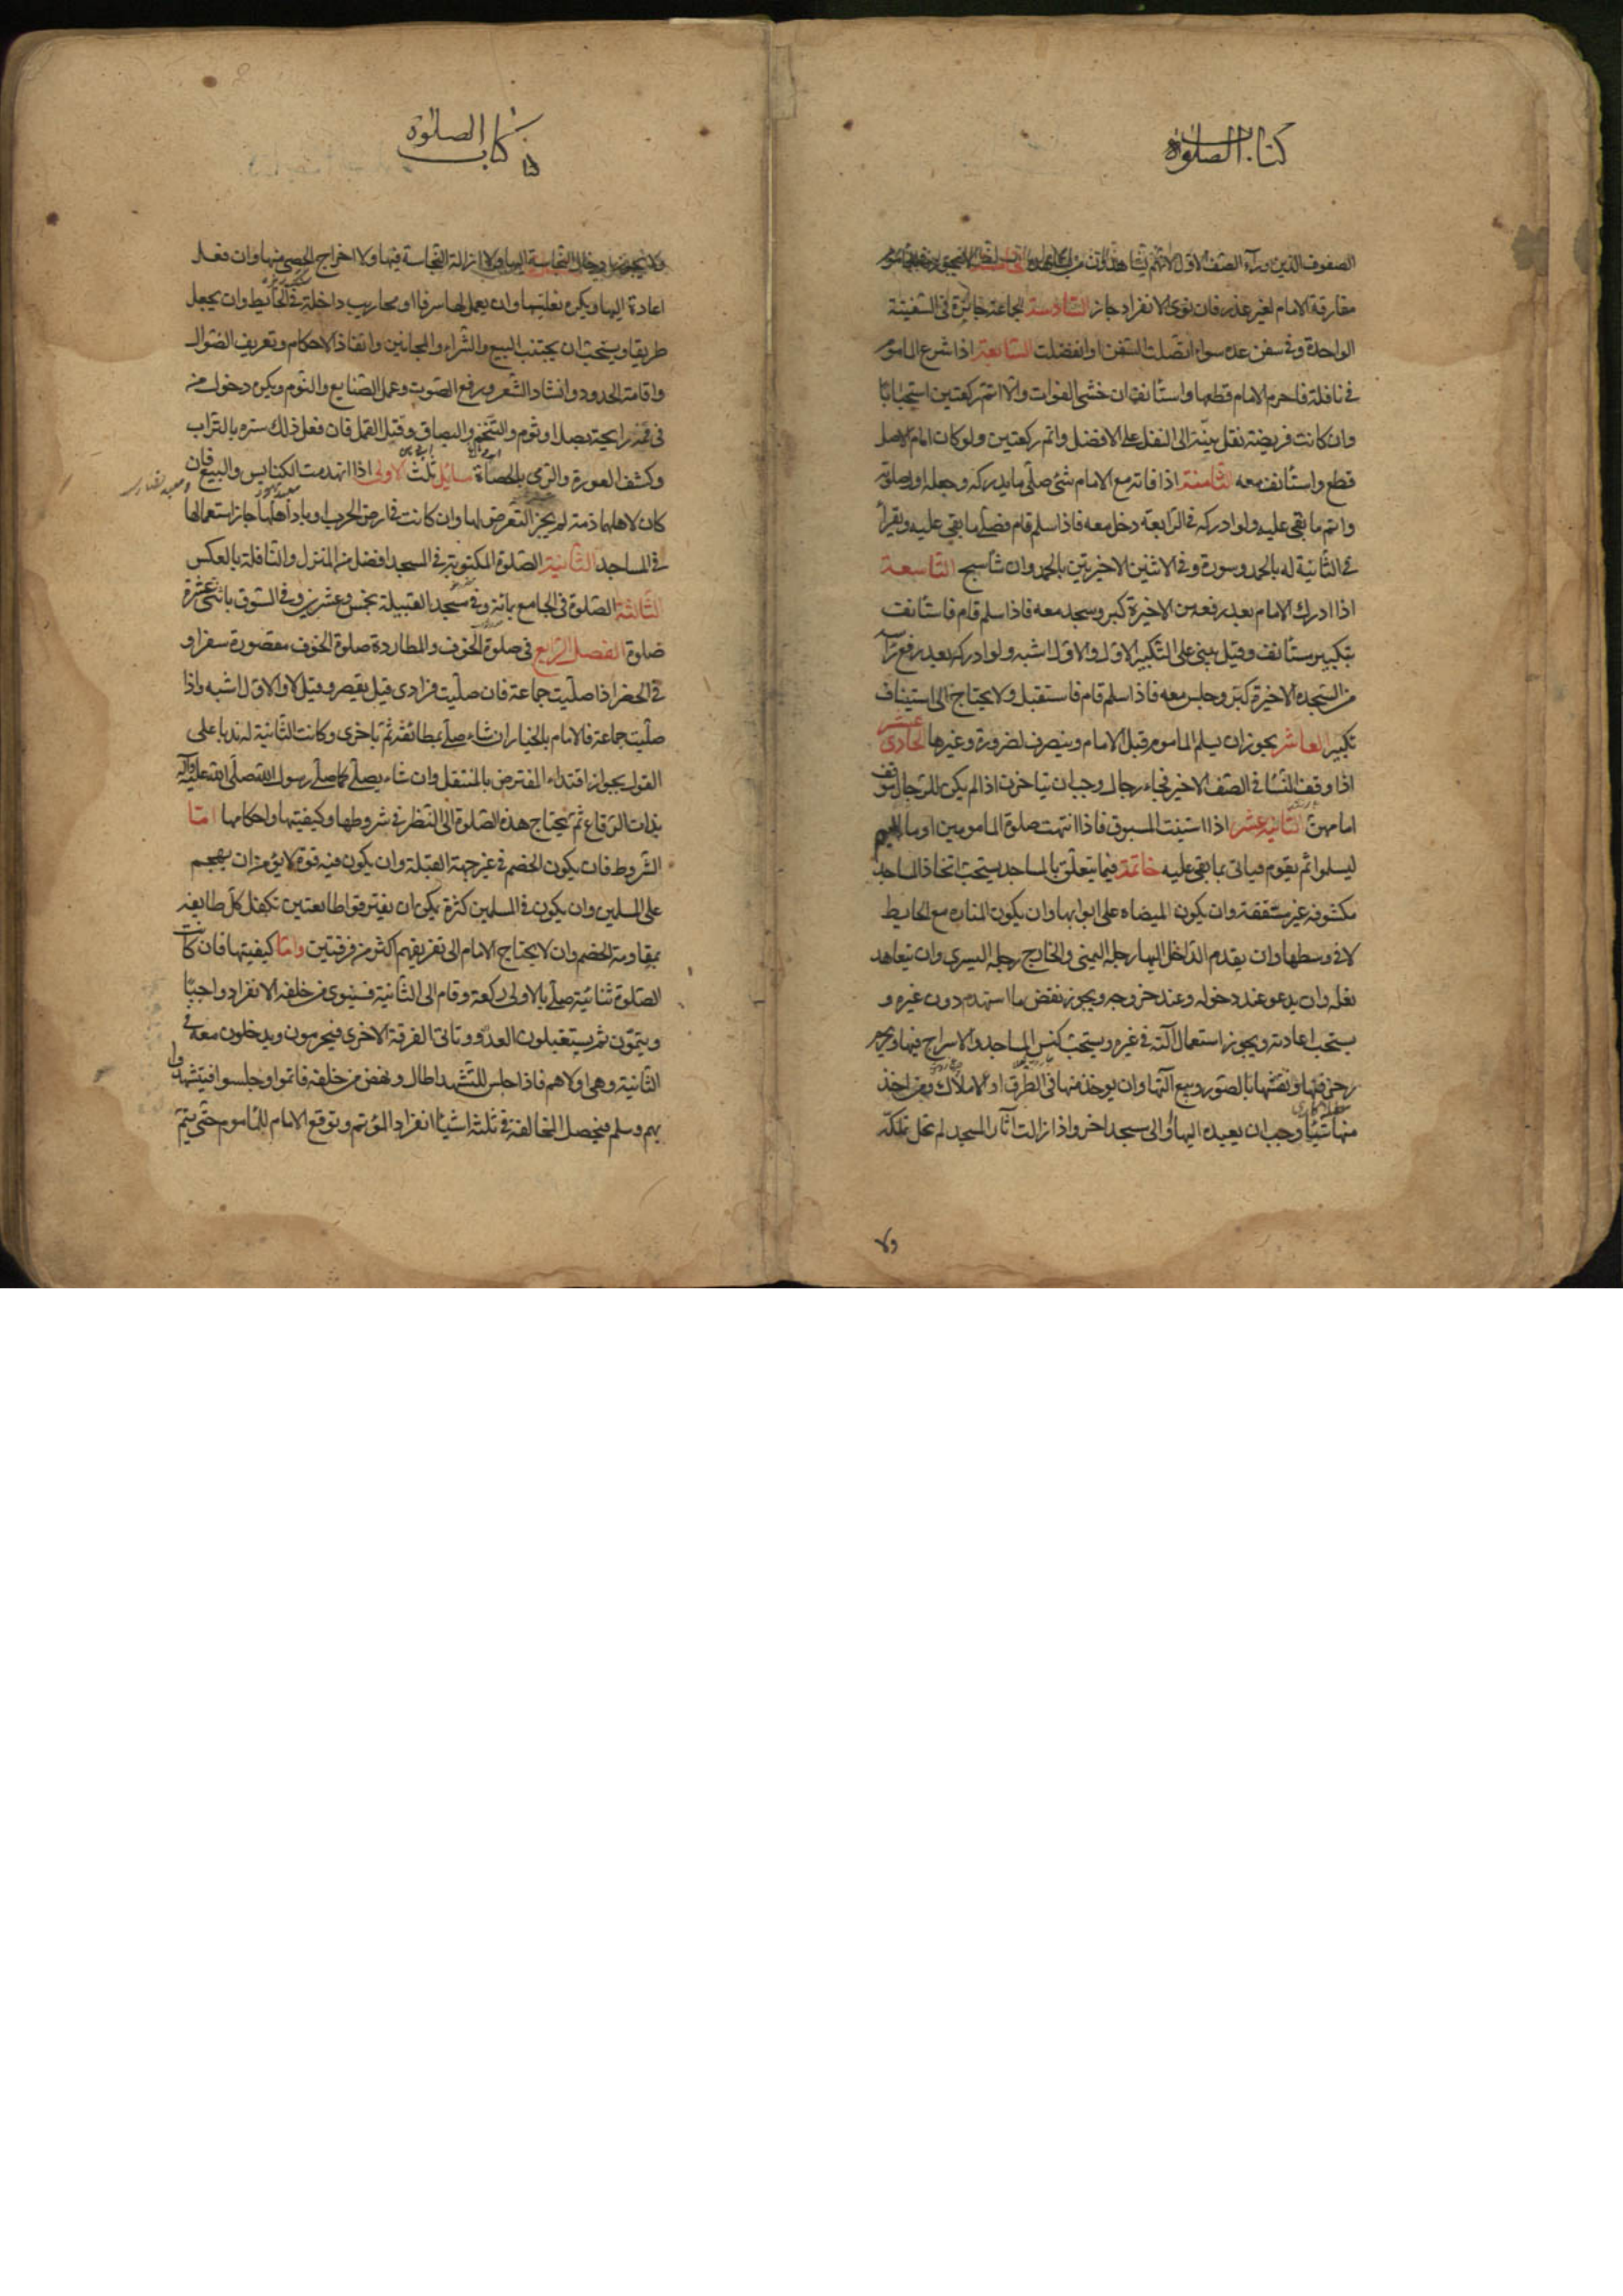 كتاب الصلوة
الصفوف الذين وراء الصف الاول لانهم يشاهدون من
مفارقة الامام لغير عذر فان نوى الانفراد جاز السادسة الجماعة جائزة فى السفينة
الواحدة وفى سفن عدة سواء اتصلت السفن او انفصلت السابعة اذا شرع الماموم
فى نافلة فاحرم الامام قطعها واستانف ان خشى الفوات والا اتم ركعتين استحبابا
وان كانت فريضة نقل نيته الى النفل على الافضل واتم ركعتين ولو كان امام الاصل
قطع واستانف معه الثامنة اذا فاته مع الامام شئ صلى ما يدركه وجعله اول صلوته
واتم ما بقى عليه ولو ادركه فى الرابعة دخل معه فاذا سلم قام فصلى ما بقى عليه ويقرأ
فى الثانية له بالحمد وسورة وفى الاثنين الاخيرتين بالحمد وان شاء سبح التاسعة
اذا ادرك الامام بعد رفعه من الاخيرة كبر وسجد معه فاذا سلم قام فاستانف
بتكبير مستانف وقيل يبنى على التكبير الاول والاول اشبه ولو ادركه بعد رفع راسه
من السجدة الاخيرة كبر وجلس معه فاذا سلم قام فاستقبل ولا يحتاج الى استيناف
تكبير العاشر يجوز ان يسلم الماموم قبل الامام وينصرف لضرورة وغيرها الحادى عشر
اذا وقف النساء فى الصف الاخير فجاء رجال وجب ان يتاخرن اذا لم يكن للرجال موقف
امامهن الثانية عشر اذا استنيب المسبوق فاذا انتهت صلوة المامومين اوما اليهم
ليسلموا ثم يقوم فياتى بما بقى عليه خاتمة فيما يتعلق بالمساجد يستحب اتخاذ المساجد
مكشوفة غير مسقفة وان يكون الميضاه على ابوابها وان يكون المنارة مع الحايط
لا فى وسطها وان يقدم الداخل اليها رجله اليمنى والخارج رجله اليسرى وان يتعاهد
نعله وان يدعو عند دخوله وعند خروجه ويجوز نقض ما استهدم دون غيره و
يستحب اعادته ويجوز استعمال آلته فى غيره ويستحب كنس المساجد والاسراج فيها ويحرم
زخرفتها ونقشها بالصور وبيع آلتها وان يوخذ منها فى الطرق او الاملاك ومن اخذ
منها شيئا وجب ان يعيده اليها او الى مسجد اخر واذا زالت آثار المسجد لم تحل تملكه
ولا
كتاب الصلوة
ولا يجوز ادخال النجاسة اليها ولا ازالة النجاسة فيها ولا اخراج الحصى منها وان فعل
اعادة اليها ويكره تعليتها وان يعمل لها شرفا او محاريب داخلة فى الحايط وان يجعل
طريقا ويستحب ان يجتنب البيع والشراء والمجانين وانفاذ الاحكام وتعريف الضوال
واقامة الحدود وانشاد الشعر ورفع الصوت وعمل الصنايع والنوم ويكره دخول من
فى فمه رايحة بصل او ثوم والتنخم والبصاق وقتل القمل فان فعل ذلك ستره بالتراب
وكشف العورة والرمى بالحصاة مسايل ثلث الاولى اذا انهدمت الكنايس والبيع فان
كان لاهلها ذمة لم يجز التعرض لها وان كانت فى ارض الحرب او باد اهلها جاز استعمالها
فى المساجد الثانية الصلوة المكتوبة فى المسجد افضل من المنزل والنافلة بالعكس
الثالثة الصلوة فى الجامع بمائة وفى مسجد القبيلة بخمس وعشرين وفى السوق باثنى عشرة
صلوة الفصل الرابع فى صلوة الخوف والمطاردة صلوة الخوف مقصورة سفرا و
فى الحضر اذا صليت جماعة فان صليت فرادى قيل يقصر وقيل لا والاول اشبه واذا
صليت جماعة فالامام بالخيار ان شاء صلى بطائفة ثم باخرى وكانت الثانية له ندبا على
القول بجواز اقتداء المفترض بالمتنفل وان شاء يصلى كما صلى رسول الله صلى الله عليه وآله
بذات الرقاع ثم يحتاج هذه الصلوة الى النظر فى شروطها وكيفيتها واحكامها اما
الشروط فان يكون الخصم فى غير جهة القبلة وان يكون فيه قوة لا يؤمن ان يهجم
على المسلمين وان يكون فى المسلمين كثرة يمكن ان يفترقوا طايفتين تكفل كل طايفة
بمقاومة الخصم وان لا يحتاج الامام الى تفريقهم اكثر من فرقتين واما كيفيتها فان كانت
الصلوة ثنائية صلى بالاولى ركعة وقام الى الثانية فينوى من خلفه الانفراد واجبا
ويتمون ثم يستقبلون العدو وتاتى الفرقة الاخرى فيحرمون ويدخلون معه فى
الثانية وهى اولاهم فاذا جلس للتشهد اطال ونهض من خلفه فاتموا وجلسوا فيتشهدوا
بهم وسلم فيحصل المخالفة فى ثلثة اشياء انفراد المؤتم وتوقع الامام للماموم حتى يتم